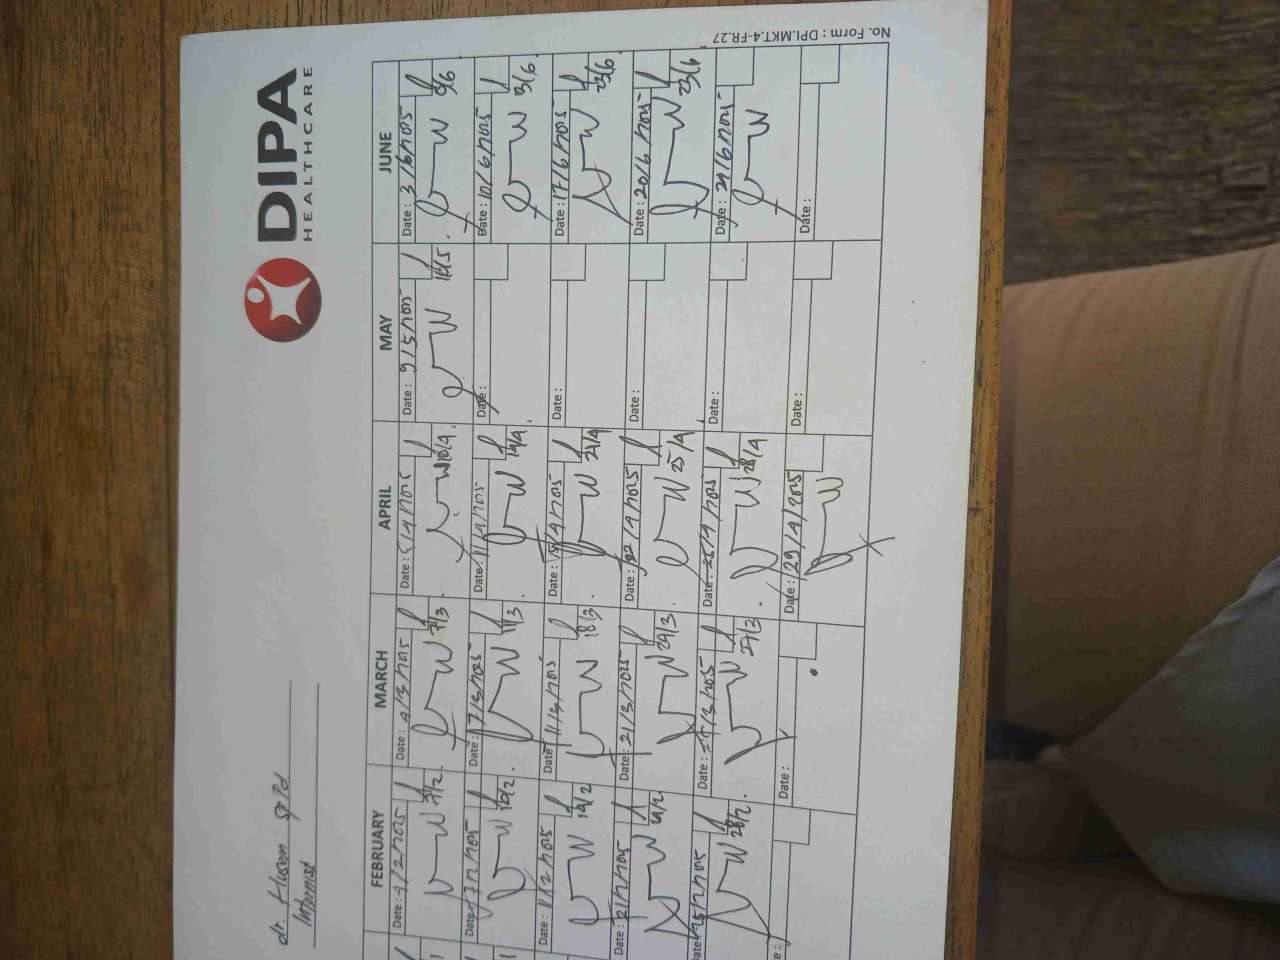 DIPA
HEALTHCARE
dr. Husem SpPd
Internist
FEBRUARY MARCH APRIL MAY JUNE
Date: 4/2/2025 Date: 4/3/2025 Date: 5/4/2025 Date: 9/5/2025 Date: 3/6/2025
7/2 7/3 10/4 5/6
Date: 7/2/2025 Date: 7/3/2025 Date: 11/4/2025 Date: Date: 10/6/2025
10/2 11/3 14/4 13/6
Date: 11/2/2025 Date: 11/3/2025 Date: Date: Date: 17/6/2025
14/2 18/3 21/4 23/6
Date: 21/2/2025 Date: 21/3/2025 Date: 22/4/2025 Date: Date: 20/6/2025
24/3 25/4 23/6
Date: 25/2/2025 Date: Date: 25/4/2025 Date: Date: 24/6/2025
28/2 27/3 28/4
Date: Date: 29/4/2025 Date: Date:
No. Form : DPI.MKT.4-FR.27